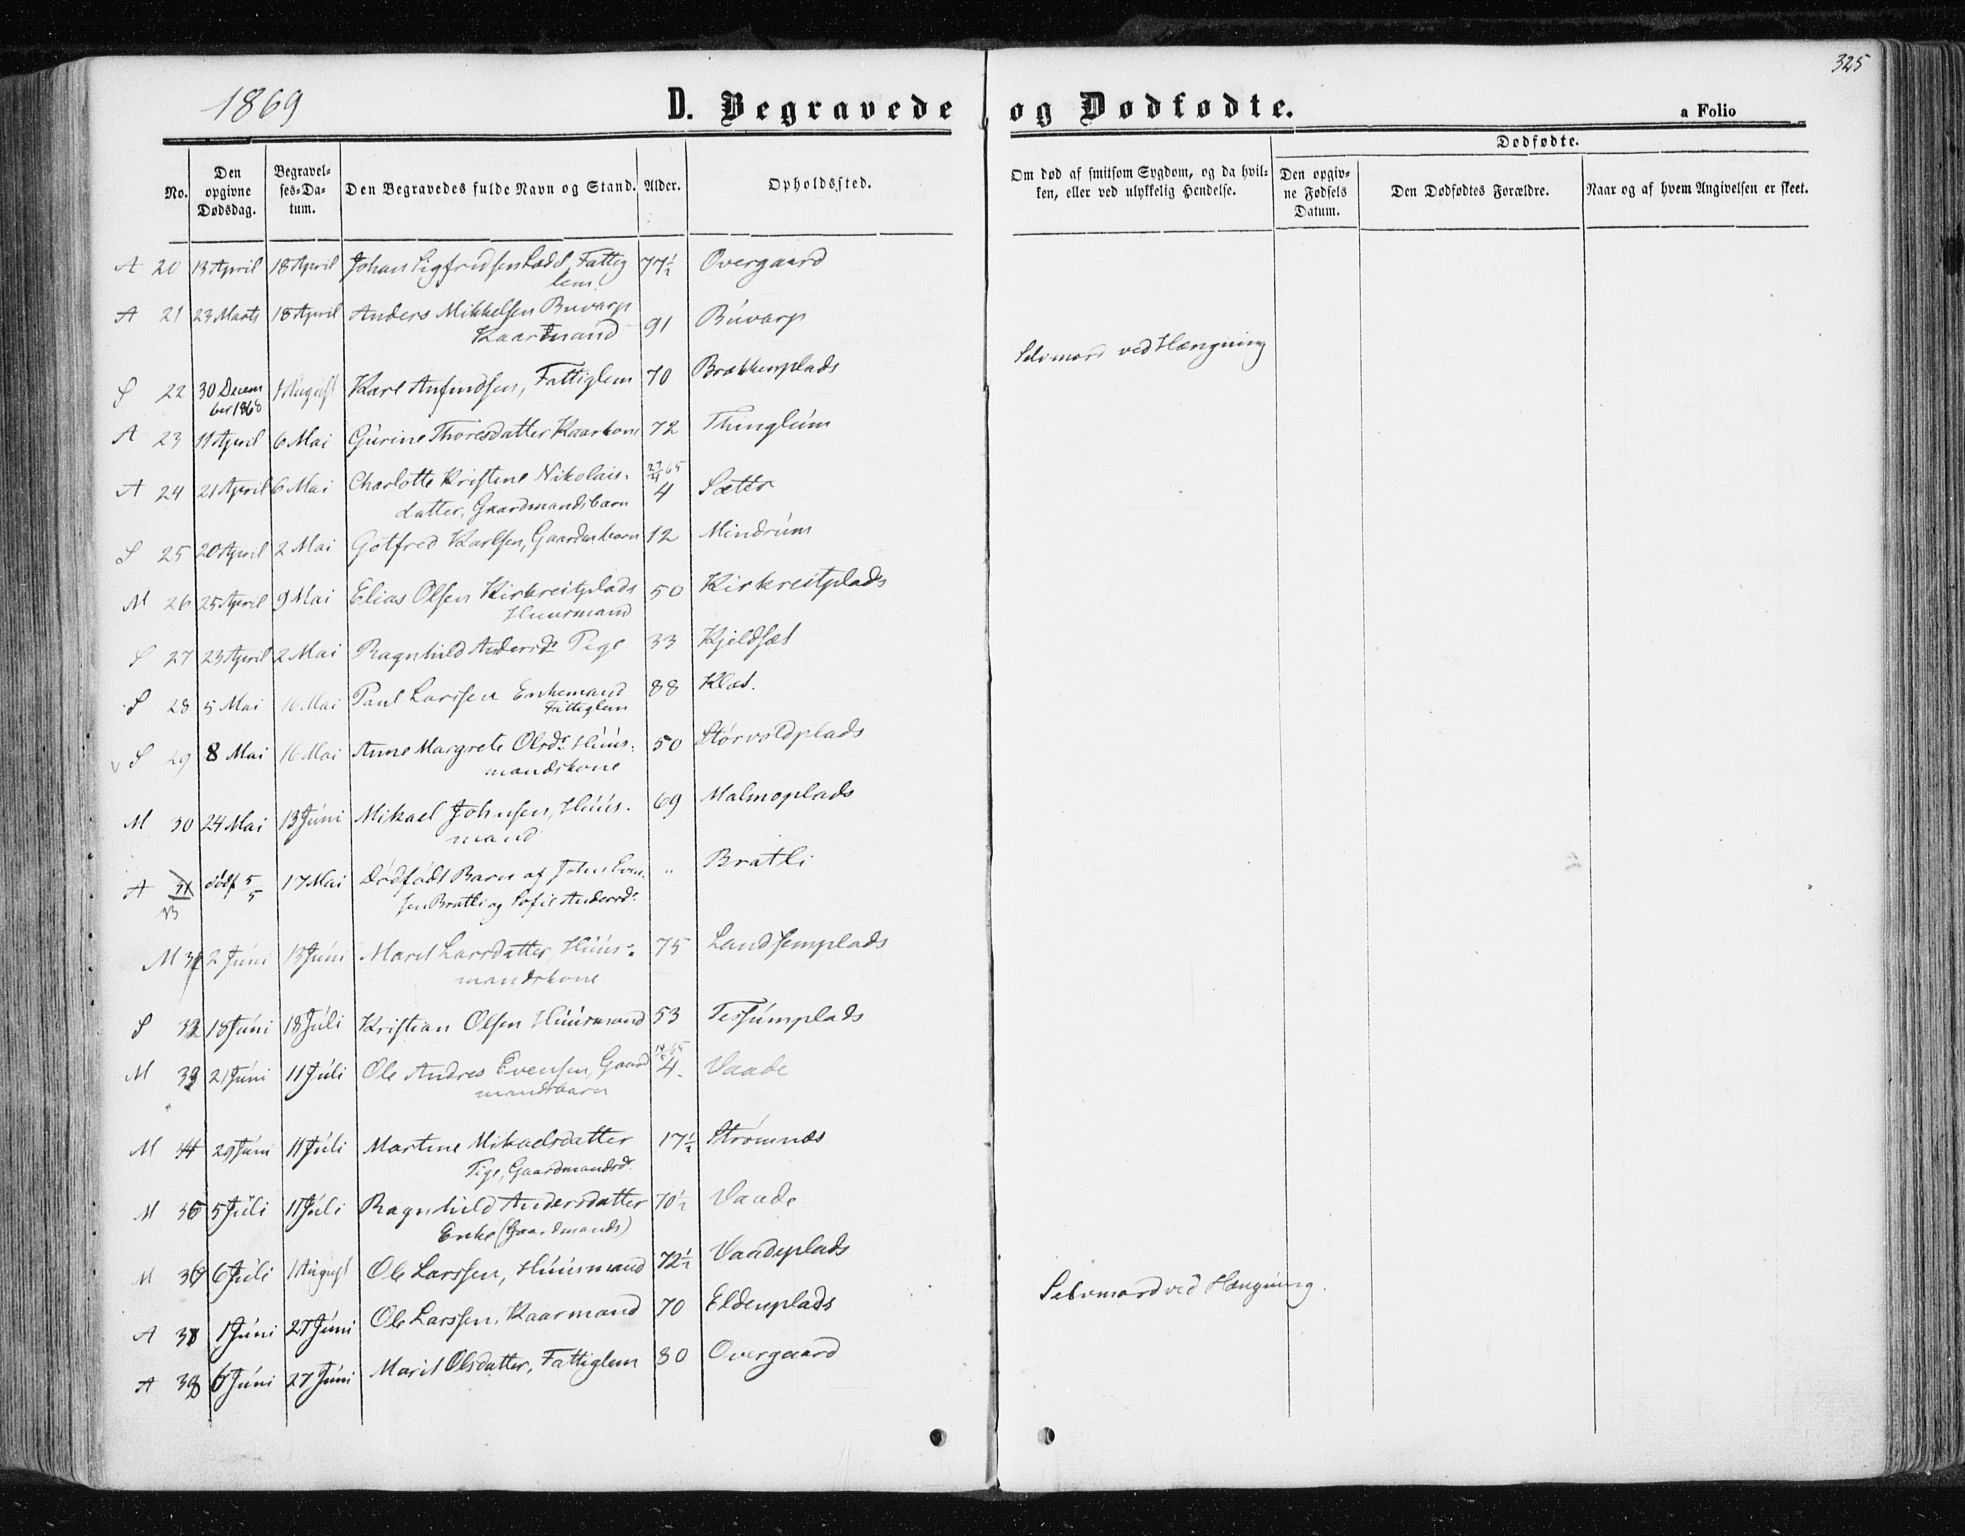 325
1869
D. Begravede og Dødfødte.
a Folio
No.
Den opgivne Dødsdag.
Begravelses-Datum.
Den Begravedes fulde Navn og Stand.
Alder.
Opholdssted.
Om død af smitsom Sygdom, og da hvilken, eller ved ulykkelig Hendelse.
Dødfødte.
Den opgivne Fødsels Datum.
Den Dødfødtes Forældre.
Naar og af hvem Angivelsen er skeet.
A 20 13 April 18 April Johan Sigfridsen Fattig 77½ Overgaard
lem
A 21 23 Marts 18 April Anders Mikkelsen Buvarp 91 Buvarp
Kaarmand
Selvmord ved Hængning
S 22 30 Decem 1 August Karl Anfindsen, Fattiglem 70 Brækkenplads
ber 1868
A 23 11 April 6 Mai Gurine Thoresdatter Kaarkone 72 Thinglum
A 24 21 April 6 Mai Charlotte Kristine Nikolais- 4 Sæter
datter, Gaardmandsbarn
S 25 20 April 2 Mai Gotfred Karlsen, Gaardmbarn 12 Mindrum
M 26 25 April 9 Mai Elias Olsen Kirkreitplads 50 Kirkreitplads
Huusmand
S 27 23 April 2 Mai Ragnhild Andersdr Pige 33 Kjeldsæt
S 28 5 Mai 16 Mai Paul Larssen Enkemand 88 Klæt.
Fattiglem
S 29 8 Mai 16 Mai Anne Margrete Olsdr Huus- 50 Størvoldplads
mandskone
M 30 24 Mai 13 Juni Mikael Johnsen, Huus- 69 Malmoplads
mand
A 31 dødf 5/5 17 Mai Dødfødt Barn af John Even- „ Bratli
sen Bratli og Sofie Andersdr
M 31 2 Juni 13 Juni Marit Larsdatter, Huus- 75 Landsemplads
mandskone
S 32 18 Juni 18 Juli Kristian Olsen Huusmand 53 Tessumplads
M 33 21 Juni 11 Juli Ole Andres Evensen, Gaard 4 Vaade
mandsbarn
M 29 Juni 11 Juli Martine Mikaelsdatter 17½ Strømnæs
Pige, Gaardmandsdr
M 5 Juli 11 Juli Ragnhild Andersdatter 70½ Vaade
Enke (Gaardmands)
M 6 Juli 1 August Ole Larssen, Huusmand 72½ Vaadeplads
A 1 Juni 27 Juni Ole Larssen, Kaarmand 70 Eldenplads
Selvmord ved Hængning.
A 6 Juni 27 Juni Marit Olsdatter, Fattiglem 80 Overgaard